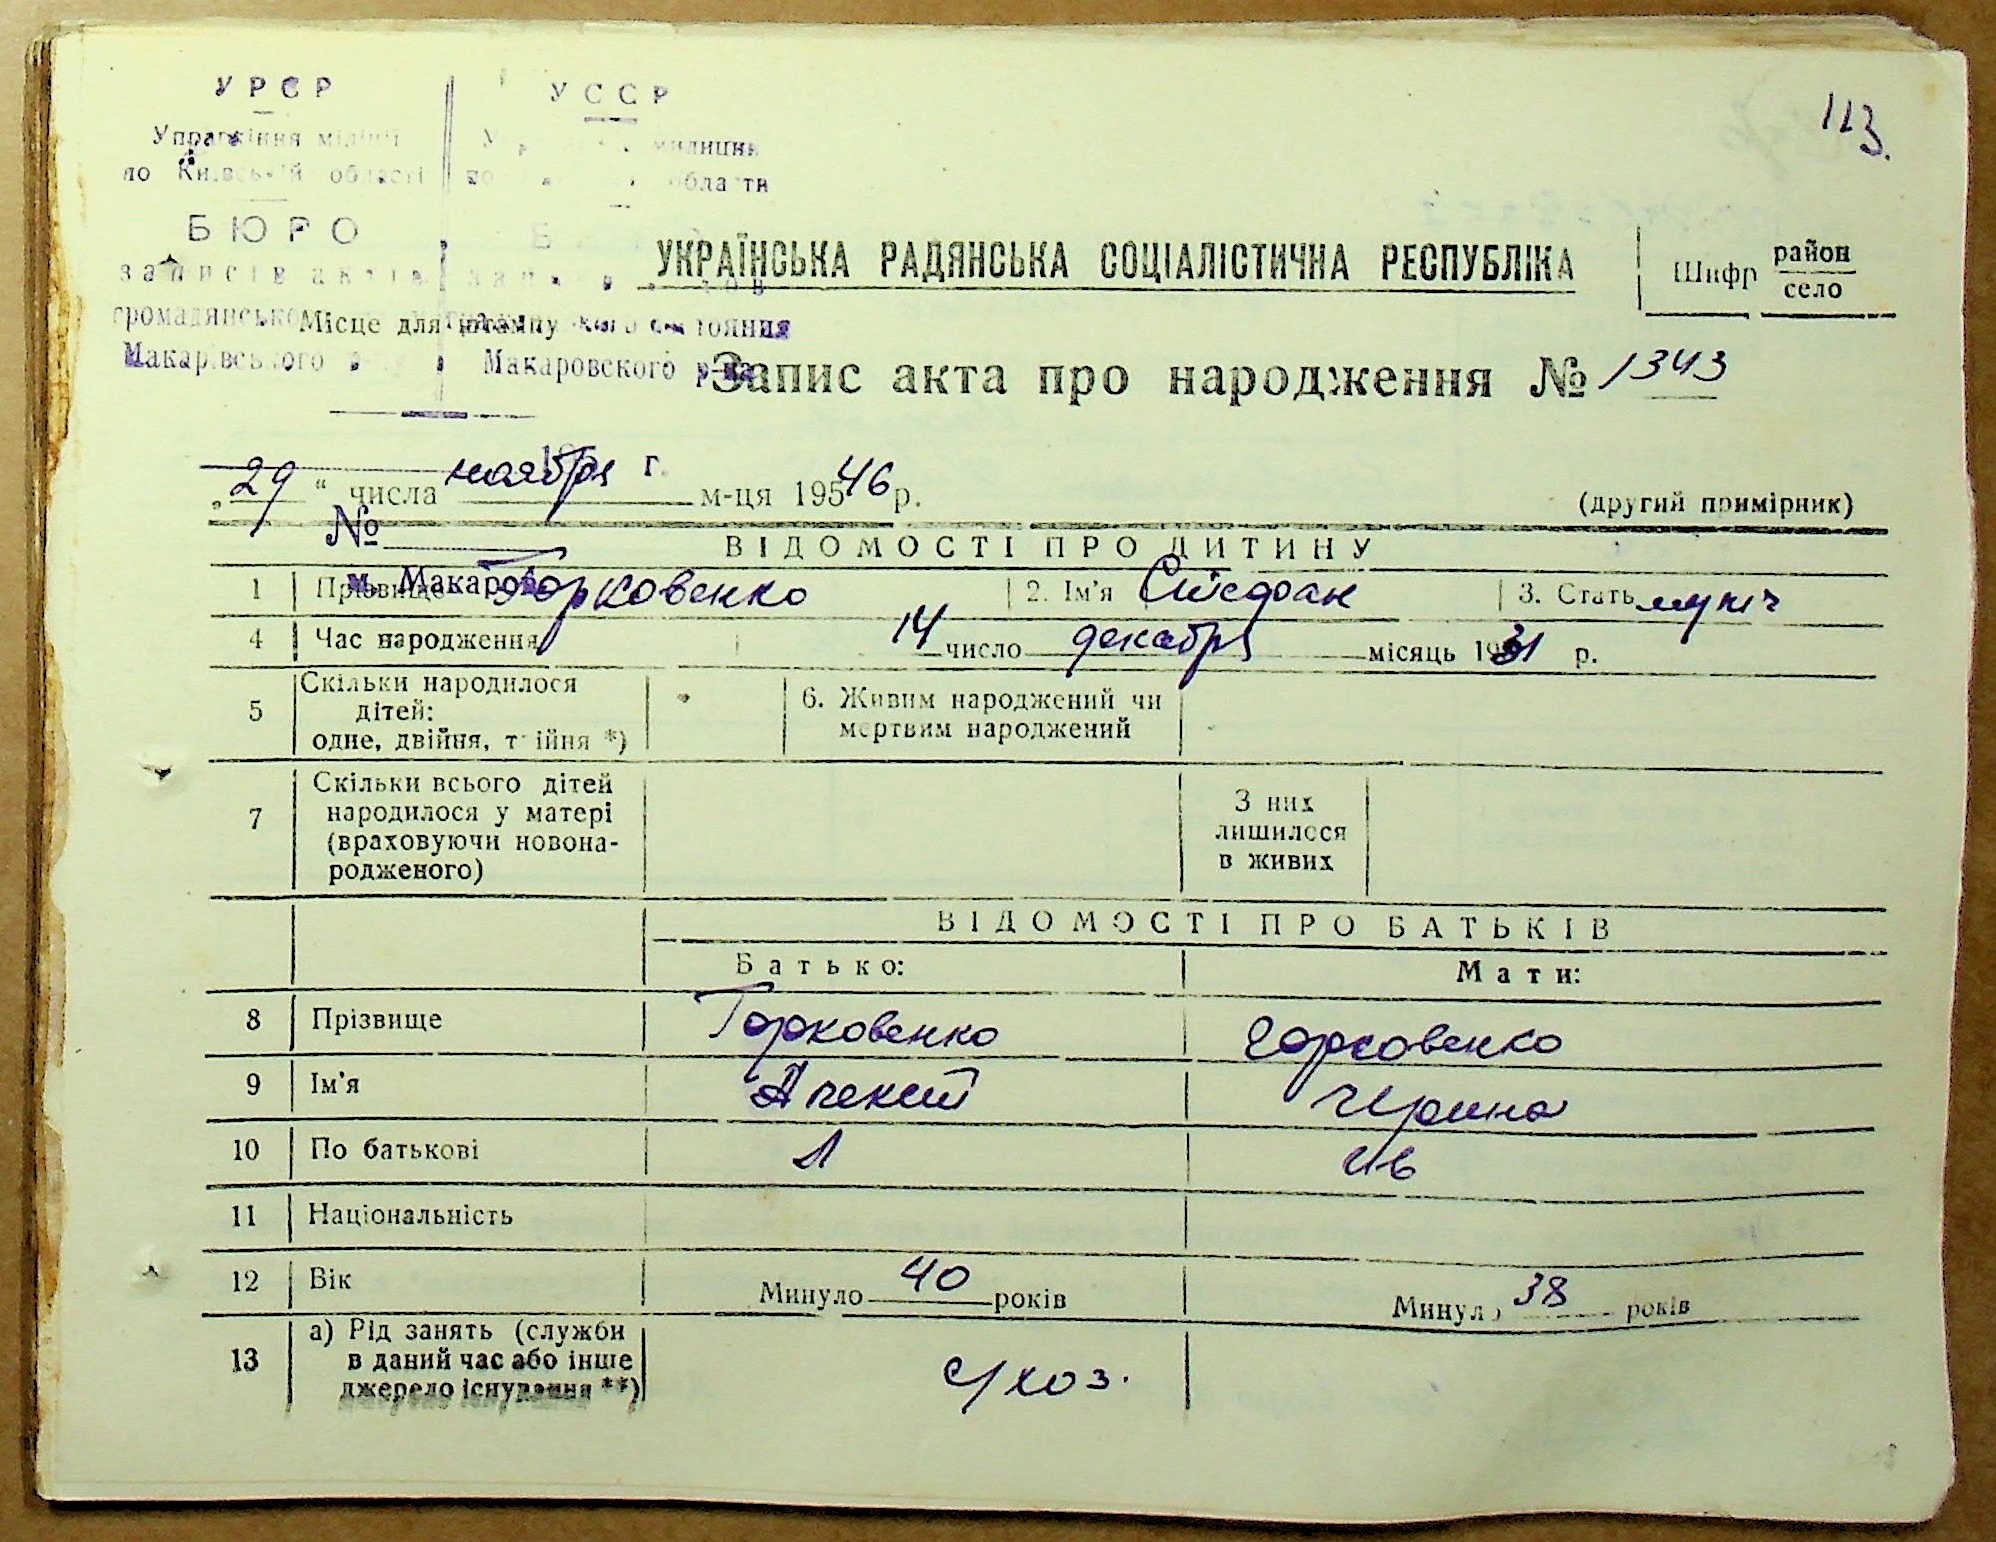 УРСР
УССР
113.
Управління міліції
милиции
по Київській області
области
БЮРО
записів актів
громадянського
Місце для штампу
состояния
Макарівського
Макаровского р-на
УКРАЇНСЬКА РАДЯНСЬКА СОЦІАЛІСТИЧНА РЕСПУБЛІКА
Шифр район
село
Запис акта про народження № 1343
г.
„29“ числа ноября м-ця 195 46 р.
(другий примірник)
№
м. Макаров
ВІДОМОСТІ ПРО ДИТИНУ
1 Прізвище Горковенко 2. Ім'я Стефан 3. Стать муж
4 Час народження 14 число декабря місяць 1931 р.
5 Скільки народилося дітей: одне, двійня, трійня *)
6. Живим народжений чи мертвим народжений
7 Скільки всього дітей народилося у матері (враховуючи новонародженого)
З них лишилося в живих
ВІДОМОСТІ ПРО БАТЬКІВ
Батько: Мати:
8 Прізвище Горковенко Горковенко
9 Ім'я Алексей Ирина
10 По батькові Л Ив
11 Національність
12 Вік Минуло 40 років Минуло 38 років
13 а) Рід занять (служби в даний час або інше джерело існування **) с/хоз.